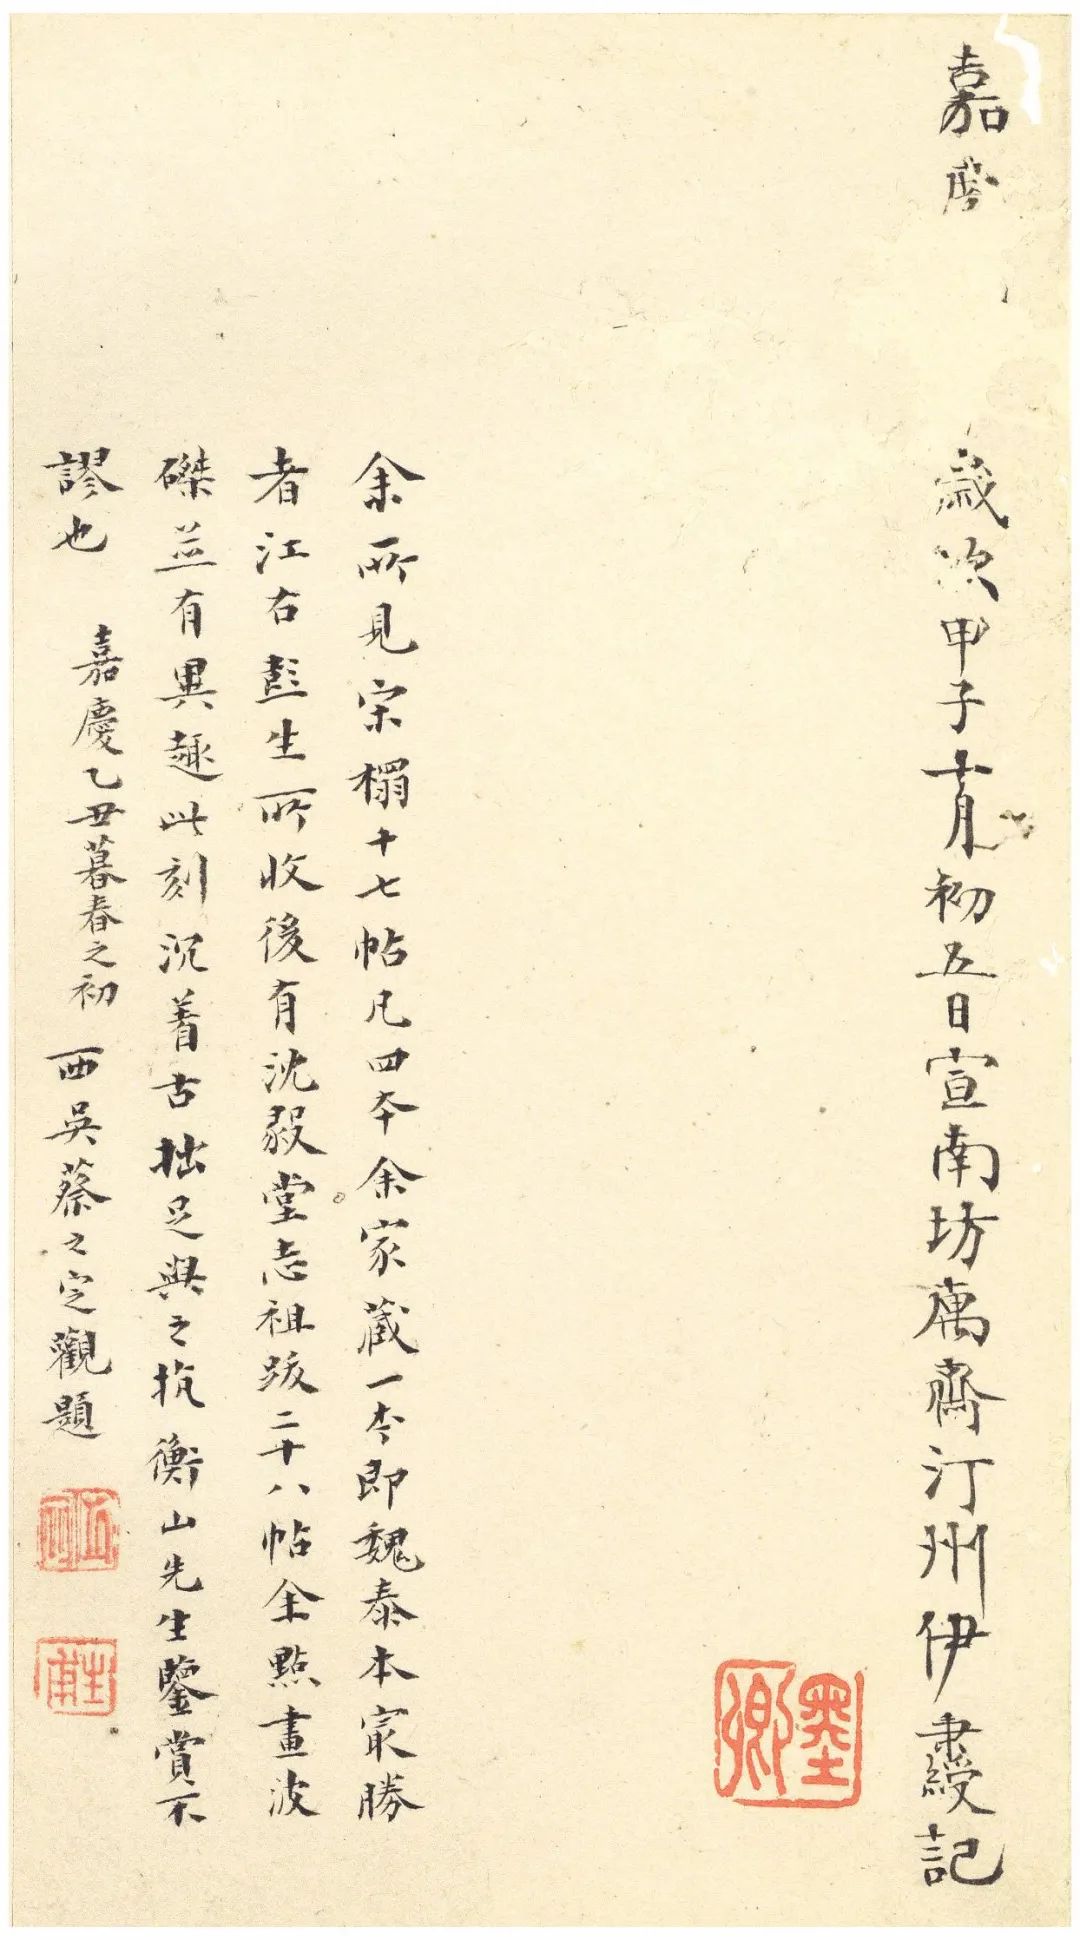 嘉慶 歲次甲子十月初五日宣南坊寓齋汀州伊秉綬記
墨卿
余所見宋榻十七帖凡四本余家藏一本即魏泰本冣勝
者江右彭生所收後有沈毅堂志祖跋二十八帖全點畫波
磔並有異趣此刻沉着古拙足與之抗衡山先生鑒賞不
謬也 嘉慶乙丑暮春之初 西吳蔡之定觀題
生甫